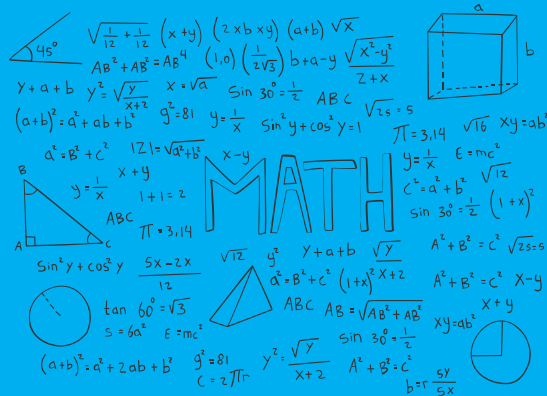 45°
√(1/12 + 1/12) (x+y) (2×b×y) (a+b) √x
a
b
AB² + AB² = AB⁴ (1,0) (1/2√3) b+a-y √(x²-y²)/2+x
y+a+b y² = √y/x+2 x = √a Sin 30° = 1/2 ABC √25 = 5
(a+b)² = a² + ab + b² g² = 81 y = 1/x Sin² y + cos² y = 1 π = 3,14 √16 xy = ab²
a² = B² + c² |z| = √(a² + b²) x-y y = 1/x E = mc²
B
x+y c² = a² + b² √12
y = 1/x 1+1 = 2 MATH sin 30° = 1/2 (1+x)²
ABC
A C
π = 3,14 √12 y² y+a+b √y A² + B² = C² √25 = 5
Sin² y + cos² y 5x-2x/12 a² = B² + c² (1+x)² x+2 A² + B² = C² x-y
tan 60° = √3 ABC AB = √(AB² + AB²) x+y
S = 6a² E = mc² xy = ab²
sin 30° = 1/2
(a+b)² = a² + 2ab + b² g² = 81 y² = √y/x+2 A² + B² = C²
C = 2πr b = r 5y/5x